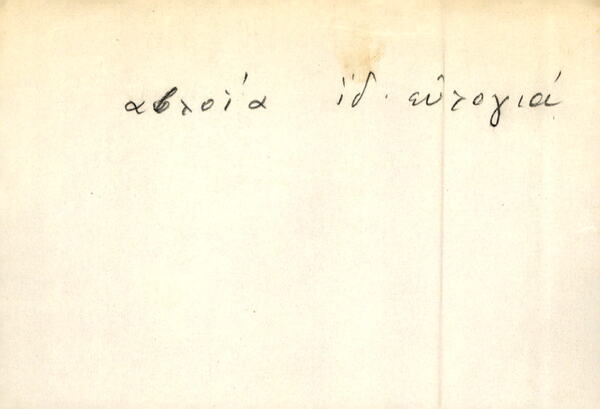 αβλοία ἰδ. εὐλογιά